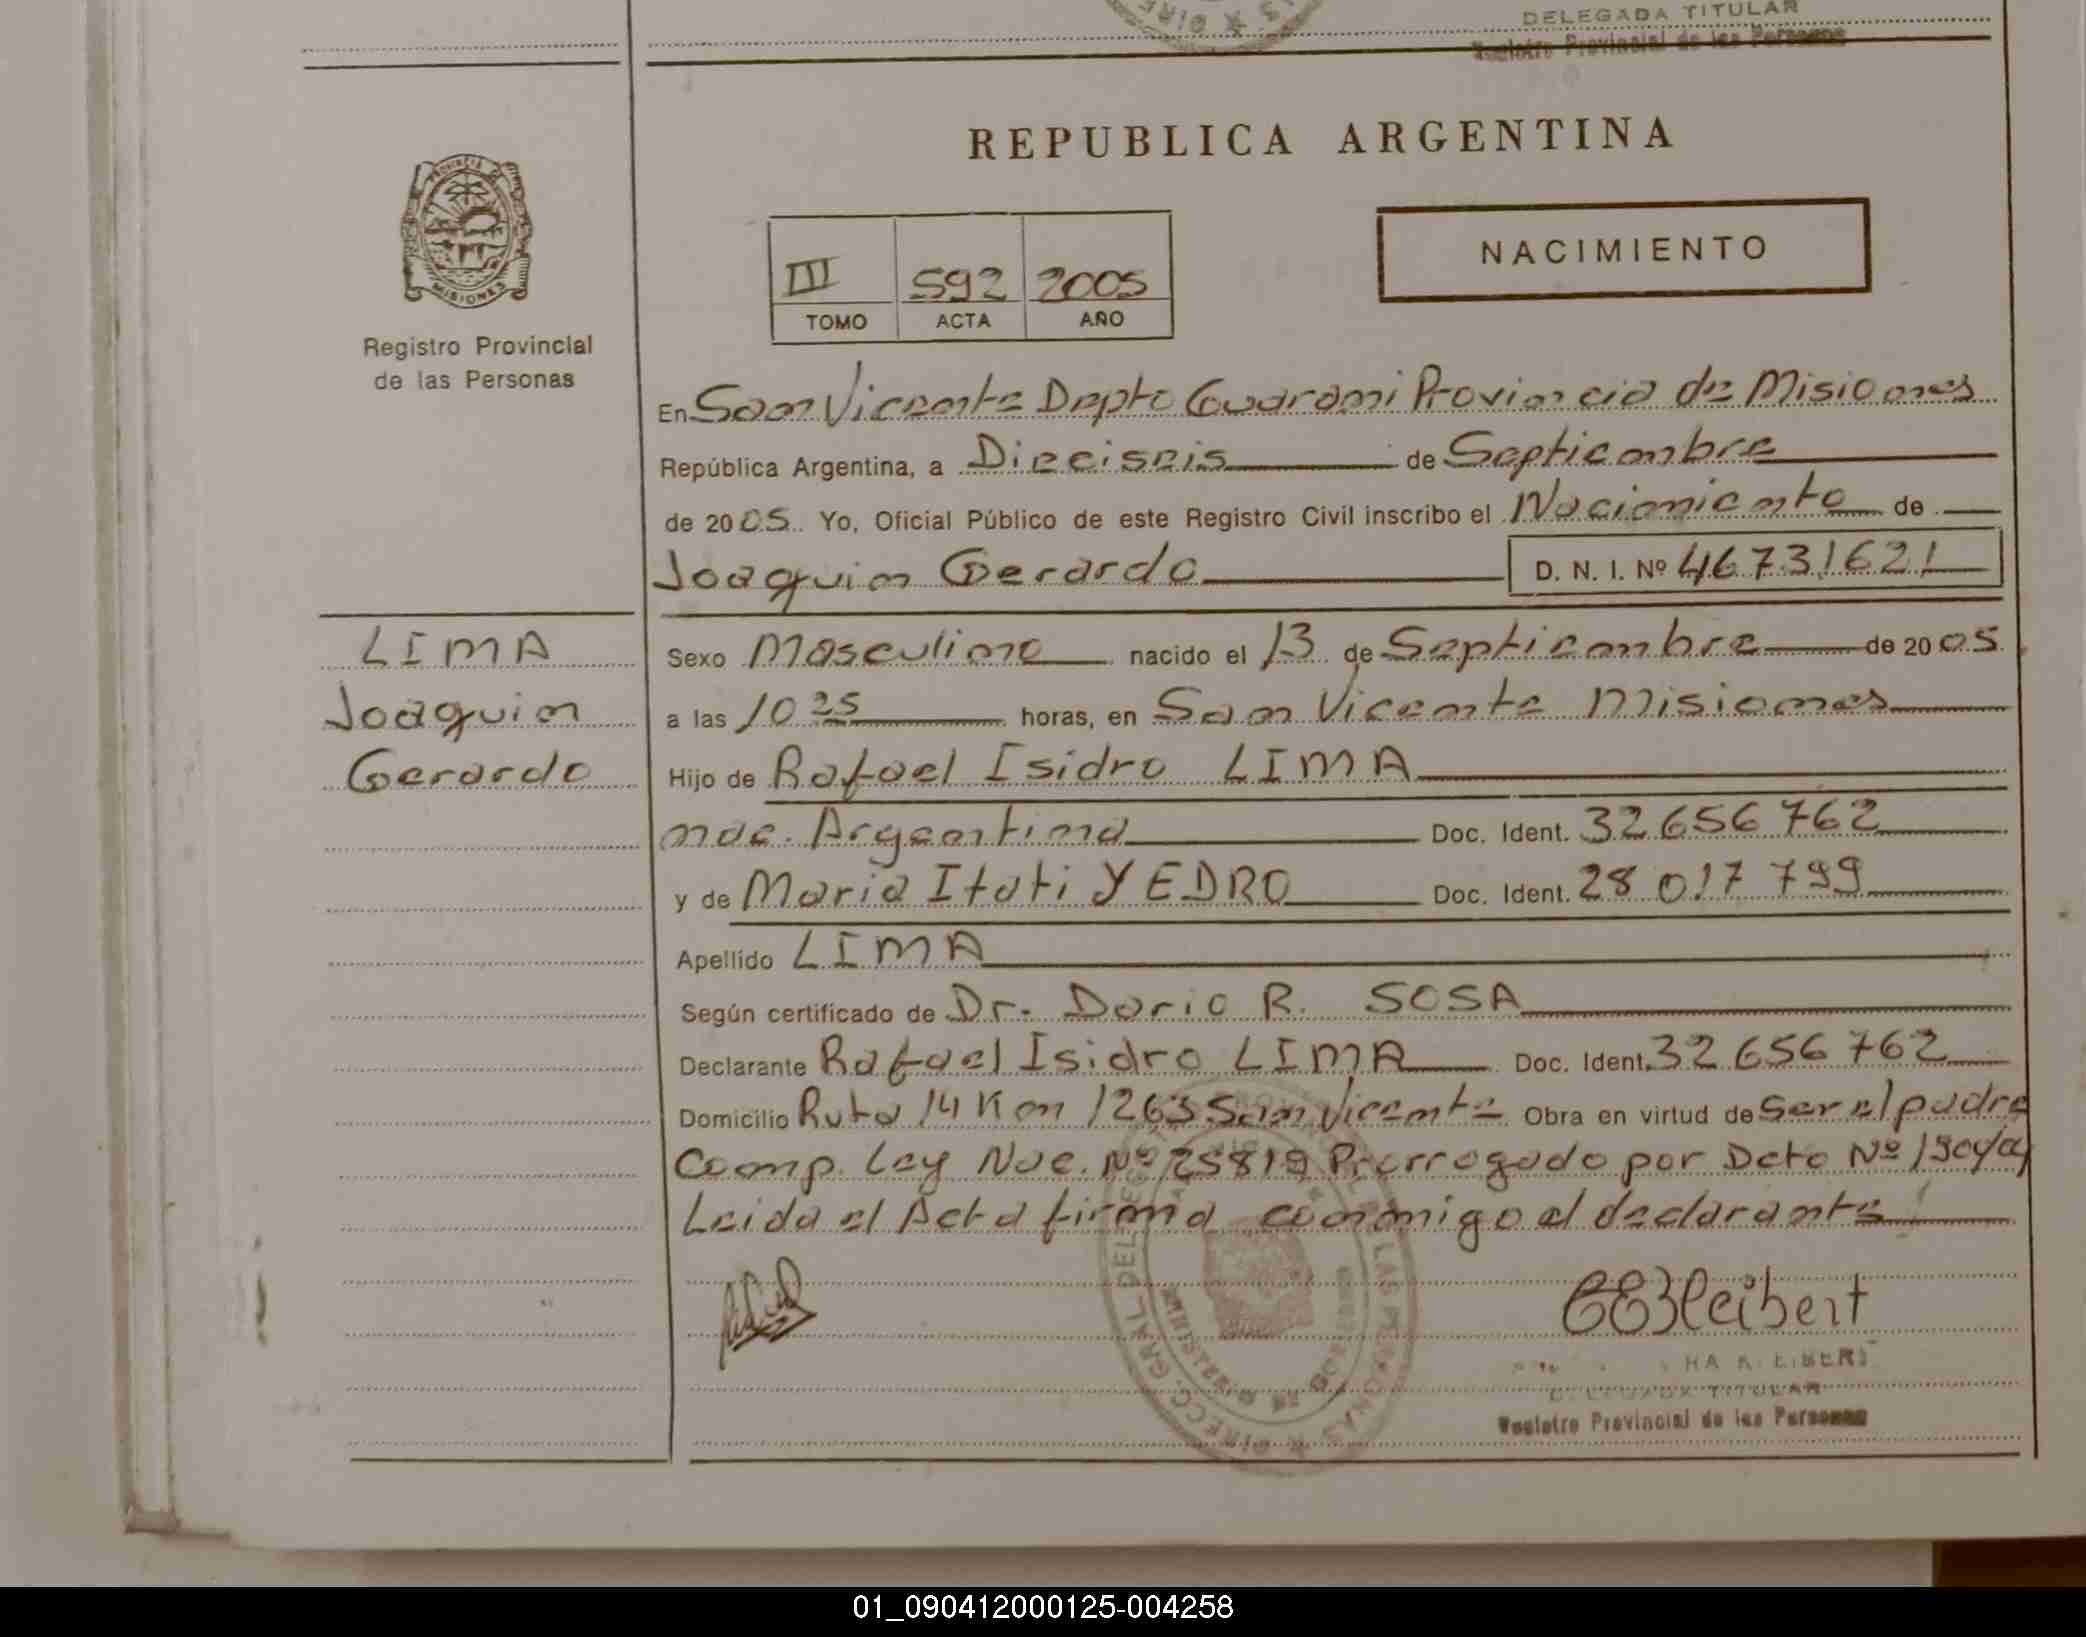 DELEGADA TITULAR
Registro Provincial de las Personas
REPUBLICA ARGENTINA
PROVINCIA DE
MISIONES
NACIMIENTO
III 592 2005
TOMO ACTA AÑO
Registro Provincial
de las Personas
En San Vicente Depto Guarani Provincia de Misiones
República Argentina, a Dieciseis de Septiembre
de 2005. Yo, Oficial Público de este Registro Civil inscribo el Nacimiento de
Joaquin Gerardo D. N. I. Nº 46731621
LIMA
Joaquin
Gerardo
Sexo Masculino nacido el 13 de Septiembre de 2005
a las 10 25 horas, en San Vicente Misiones
Hijo de Rafael Isidro LIMA
nac. Argentina Doc. Ident. 32656762
y de Maria Itati YEDRO Doc. Ident. 28 017 799
Apellido LIMA
Según certificado de Dr. Dario R. SOSA
Declarante Rafael Isidro LIMA Doc. Ident. 32 656 762
Domicilio Ruta 14 Km 1263 San Vicente Obra en virtud de ser el padre
Comp. Ley Nac. Nº 25819 Prorrogado por Dcto Nº
Leida el Acta firma conmigo el declarante
DELEGADA TITULAR
Registro Provincial de las Personas
01_090412000125-004258